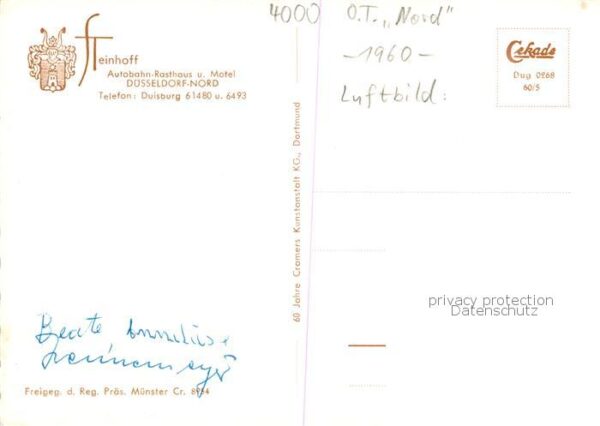 Steinhoff
Autobahn-Rasthaus u. Motel
DÜSSELDORF-NORD
Telefon: Duisburg 61480 u. 6493
4000
O.T. „Nord"
-1960-
Luftbild:
Cekade
Dug 0268
60/5
60 Jahre Cramers Kunstanstalt KG., Dortmund
privacy protection
Datenschutz
Beate
Freigeg. d. Reg. Präs. Münster Cr. 8954